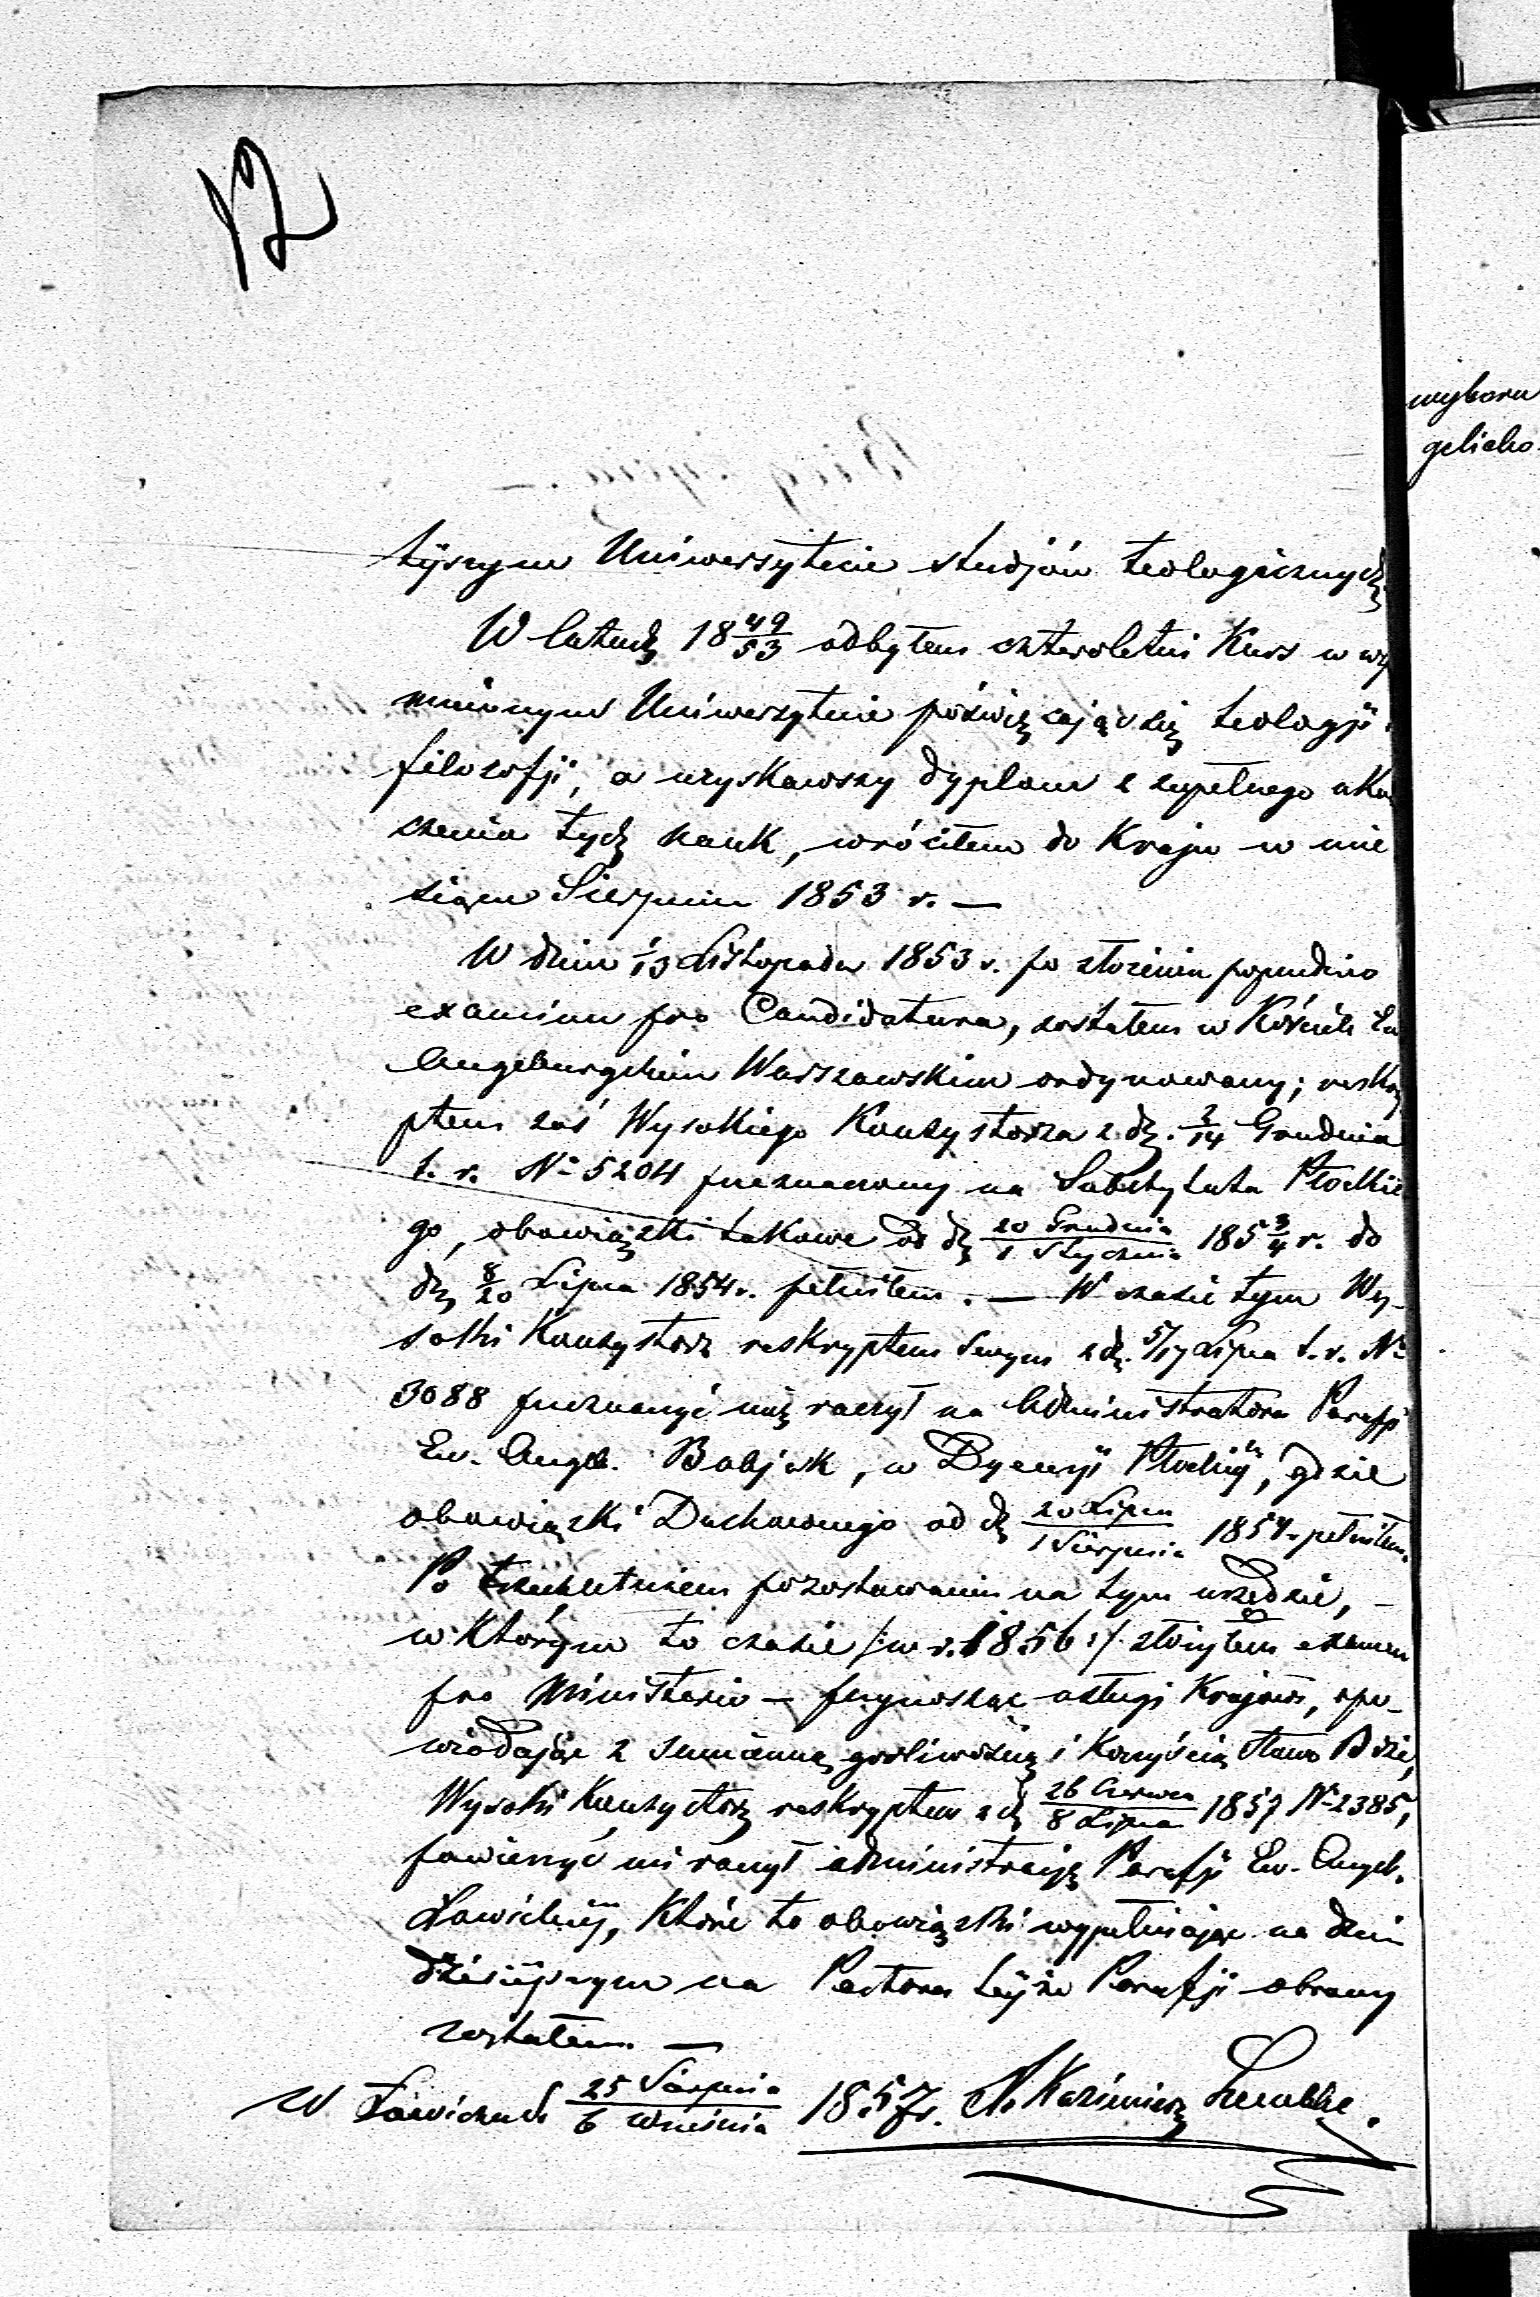 12
wyboru
gelicko
tejszym Uniwersytecie studjów teologicznych
W latach 18 49/53 odbyłem czteroletni Kurs w wy
mienionym Uniwersytecie poświęcając się teologji
filozofji, a uzyskawszy dyplom z zupełnego ukoń
czenia tych nauk, wróciłem do Kraju w mie
siącu Sierpniu 1853 r. —
W dniu 1/13 Listopada 1853 r. po złożeniu poprzednio
examinu pro Candidatura, zostałem w Kościele Ew
Augsburgskim Warszawskim ordynowany; reskry
ptem zaś Wysokiego Konsystorza z d. 2/14 Grudnia
t. r. No 5204 przeznaczony na Substytuta Płockie
go, obowiązki takowe od d 20 Grudnia/1 Stycznia 185 3/4 r. do
d. 8/20 Lipca 1854 r. pełniłem. — W czasie tym Wy-
soki Konsystorz reskryptem swym z d. 5/17 Lipca t. r. No
3088 przeznaczyć mię raczył na Administratora Parafji
Ew. Augb. Babjak, w Dyecezji Płockiej, gdzie
obowiązki Duchownego od d 20 Lipca/1 Sierpnia 1854 pełniłem.
Po trzechletniem pozostawaniu na tym urzędzie, —
w którym to czasie /: w r. 1856 :/ złożyłem examen
pro Ministerio — przynosząc usługi Krajowi, opo-
wiadając z sumienną gorliwością i korzyścią Słowo Boże,
Wysoki Konsystorz reskryptem z d 26 Czerwca/8 Lipca 1857 No 2385,
powierzyć mi raczył administracją Parafji Ew. Augsb.
które to obowiązki wypełniając na dniu
dzisiejszym na Pastora tejże Parafji obrany
zostałem. —
W 25 Sierpnia/6 Września 1857 r. Kazimierz